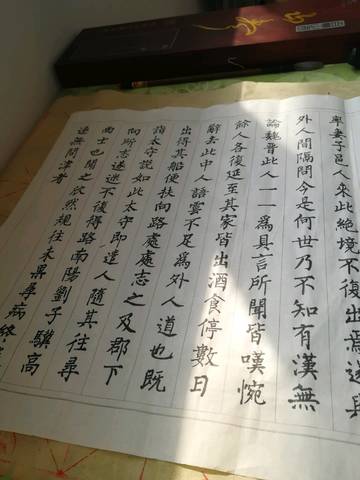 率妻子邑人來此絕境不復出焉遂與
外人間隔問今是何世乃不知有漢無
論魏晉此人一一為具言所聞皆嘆惋
餘人各復延至其家皆出酒食停數日
辭去此中人語雲不足為外人道也既
出得其船便扶向路處處志之及郡下
詣太守說如此太守即遣人隨其往尋
向所志遂迷不復得路南陽劉子驥高
尚士也聞之欣然規往未果尋病終
遂無問津者